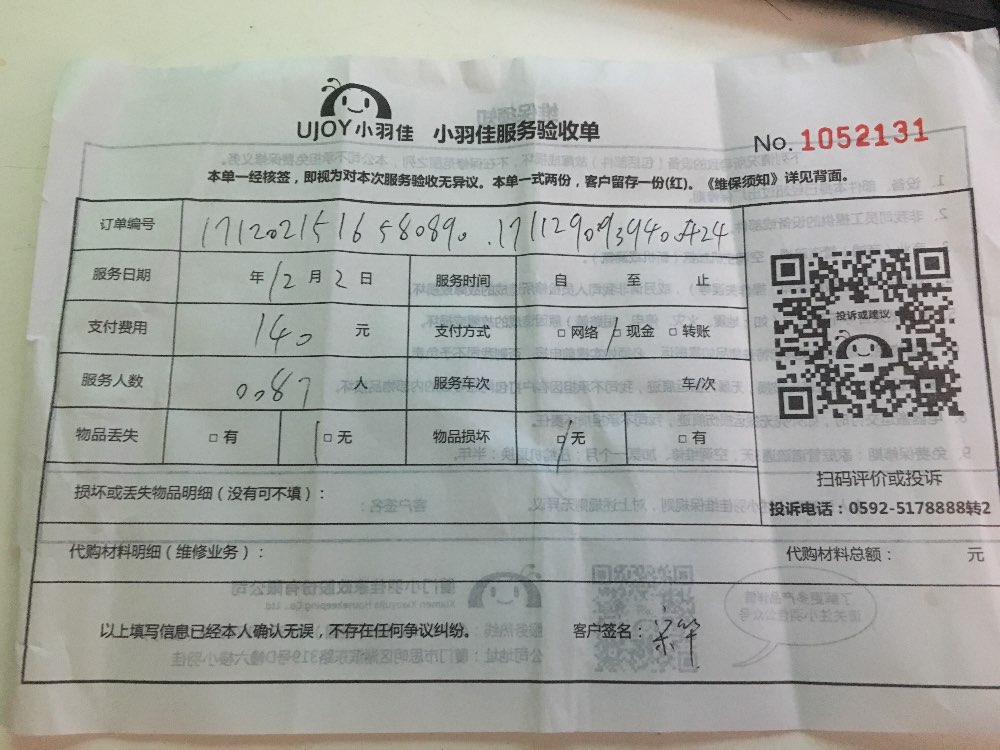 UJOY小羽佳 小羽佳服务验收单
No. 1052131
本单一经核签，即视为对本次服务验收无异议。本单一式两份，客户留存一份(红)。《维保须知》详见背面。
订单编号 1712021516580890.
服务日期 年 12 月 2 日 服务时间 自 至 止
支付费用 140 元 支付方式 □ 网络 □ 现金 □ 转账
服务人数 0087 人 服务车次 车/次
物品丢失 □ 有 □ 无 物品损坏 □ 无 □ 有
投诉或建议
扫码评价或投诉
投诉电话：0592-5178888转2
损坏或丢失物品明细（没有可不填）：
代购材料明细（维修业务）： 代购材料总额： 元
以上填写信息已经本人确认无误，不存在任何争议纠纷。 客户签名：